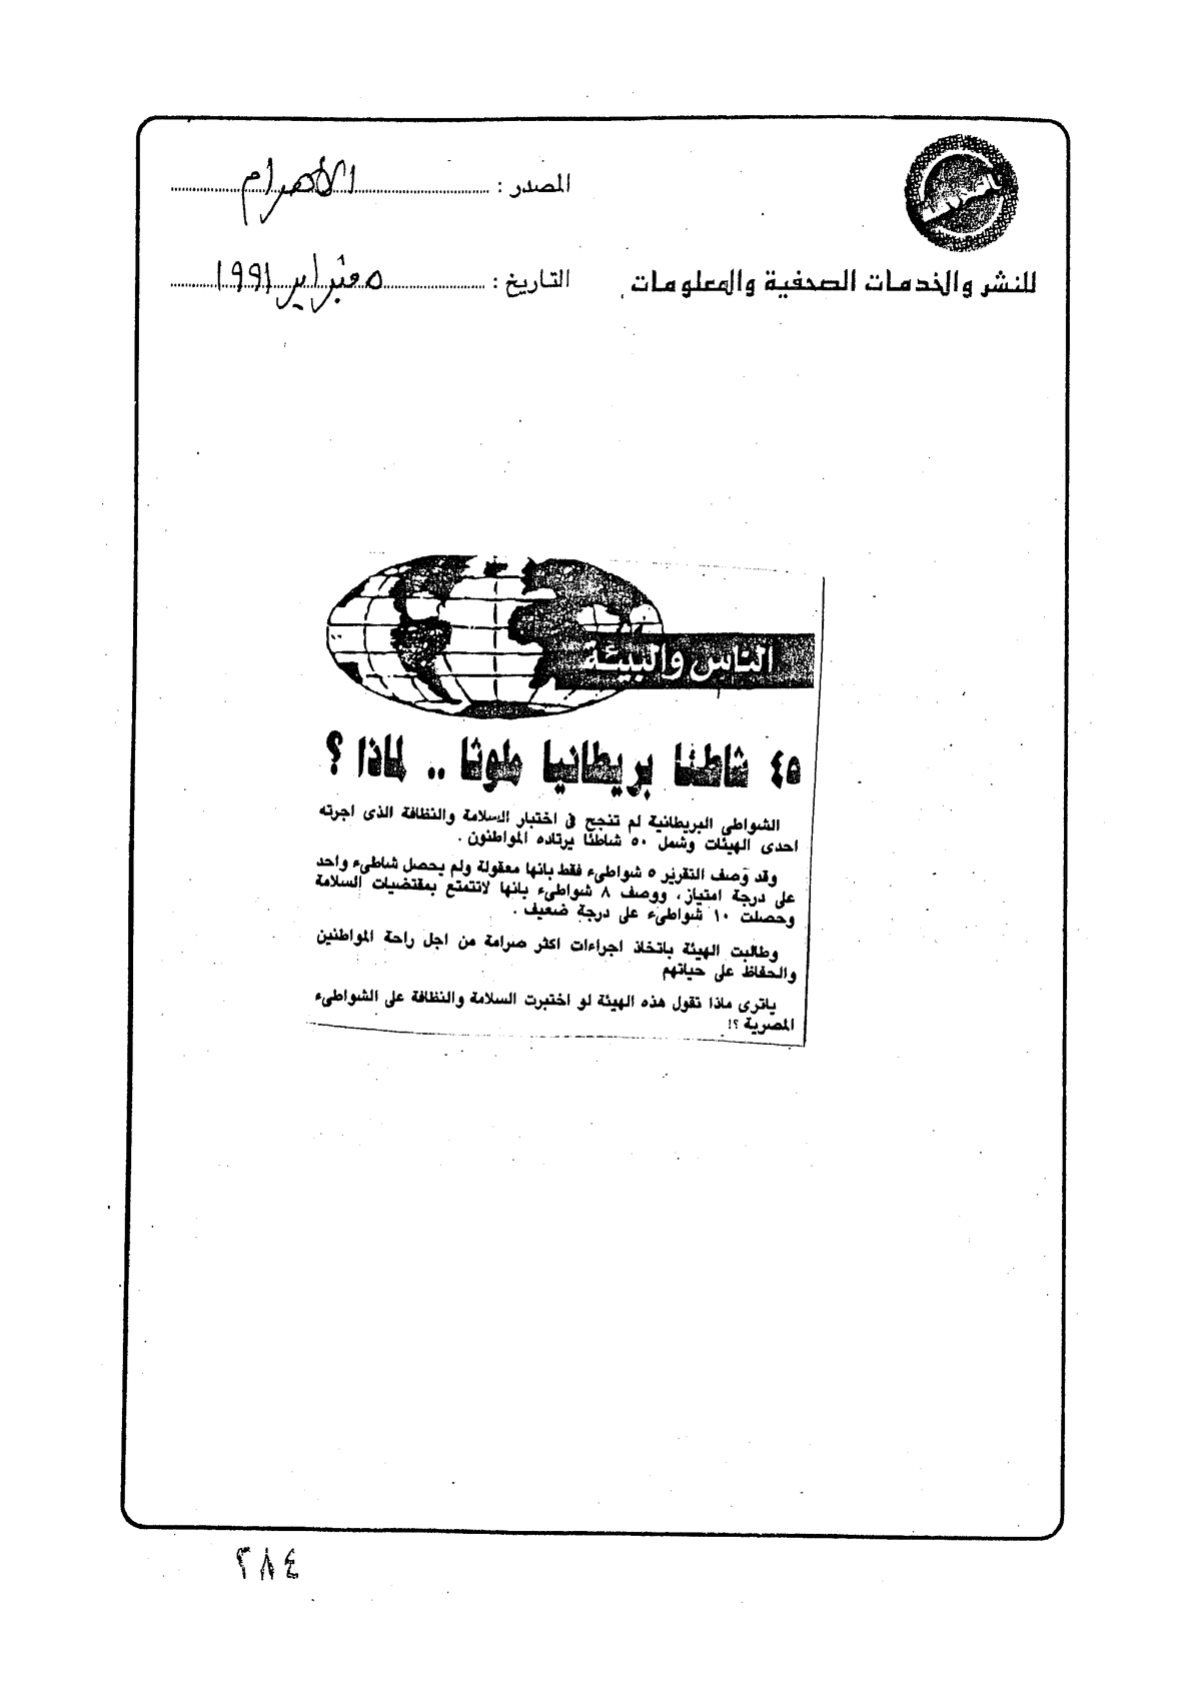 المصدر : الأهرام
للنشر والخدمات الصحفية والمعلومات
التاريخ : ٥ فبراير ١٩٩١
الناس والبيئة
٤٥ شاطئا بريطانيا ملوثا .. لماذا ؟
الشواطى البريطانية لم تنجح فى اختبار السلامة والنظافة الذى اجرته
احدى الهيئات وشمل ٥٠ شاطئا يرتاده المواطنون .
وقد وصف التقرير ٥ شواطىء فقط بانها معقولة ولم يحصل شاطىء واحد
على درجة امتياز ، ووصف ٨ شواطىء بانها لاتتمتع بمقتضيات السلامة
وحصلت ١٠ شواطىء على درجة ضعيف .
وطالبت الهيئة باتخاذ اجراءات اكثر صرامة من اجل راحة المواطنين
والحفاظ على حياتهم
ياترى ماذا تقول هذه الهيئة لو اختبرت السلامة والنظافة على الشواطىء
المصرية ؟!
٣٨٤